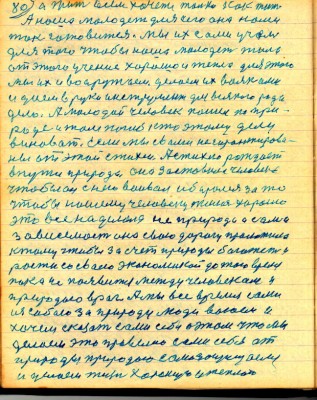 80/ а жить всем хочется только как жить
А наша молодежь для чего она нами
так готовится. мы их сами учим
для того чтобы наша молодежь жила
от этого учения хорошо и тепло для этого
мы их и вооружаем, делаем их вояками
и даем в руки инструмент для всякого рода
дело. А молодой человек пошел по при-
роде и там погиб кто этому делу
виноват. если мы с вами не гарантирова-
ны от этой стихии. А стихию рождает
внутри природа, она заставила человека
чтобы он с нею воевал и борясь за то
чтобы нашему человеку жилося хорошо
это все наделила не природа а сама
зависимость она свою дорогу проложила
к тому чтобы за счет природы богатеть и
расти со своею экономикой до того время
пока не появится между человеком и
природою враг. А мы все время сами
из себя за природу люди воюем и
хотим сказать сами себе о том что мы
делаем это правильно сами себя от
природы природою самозащищаем
и делаем жить хорошую и теплою